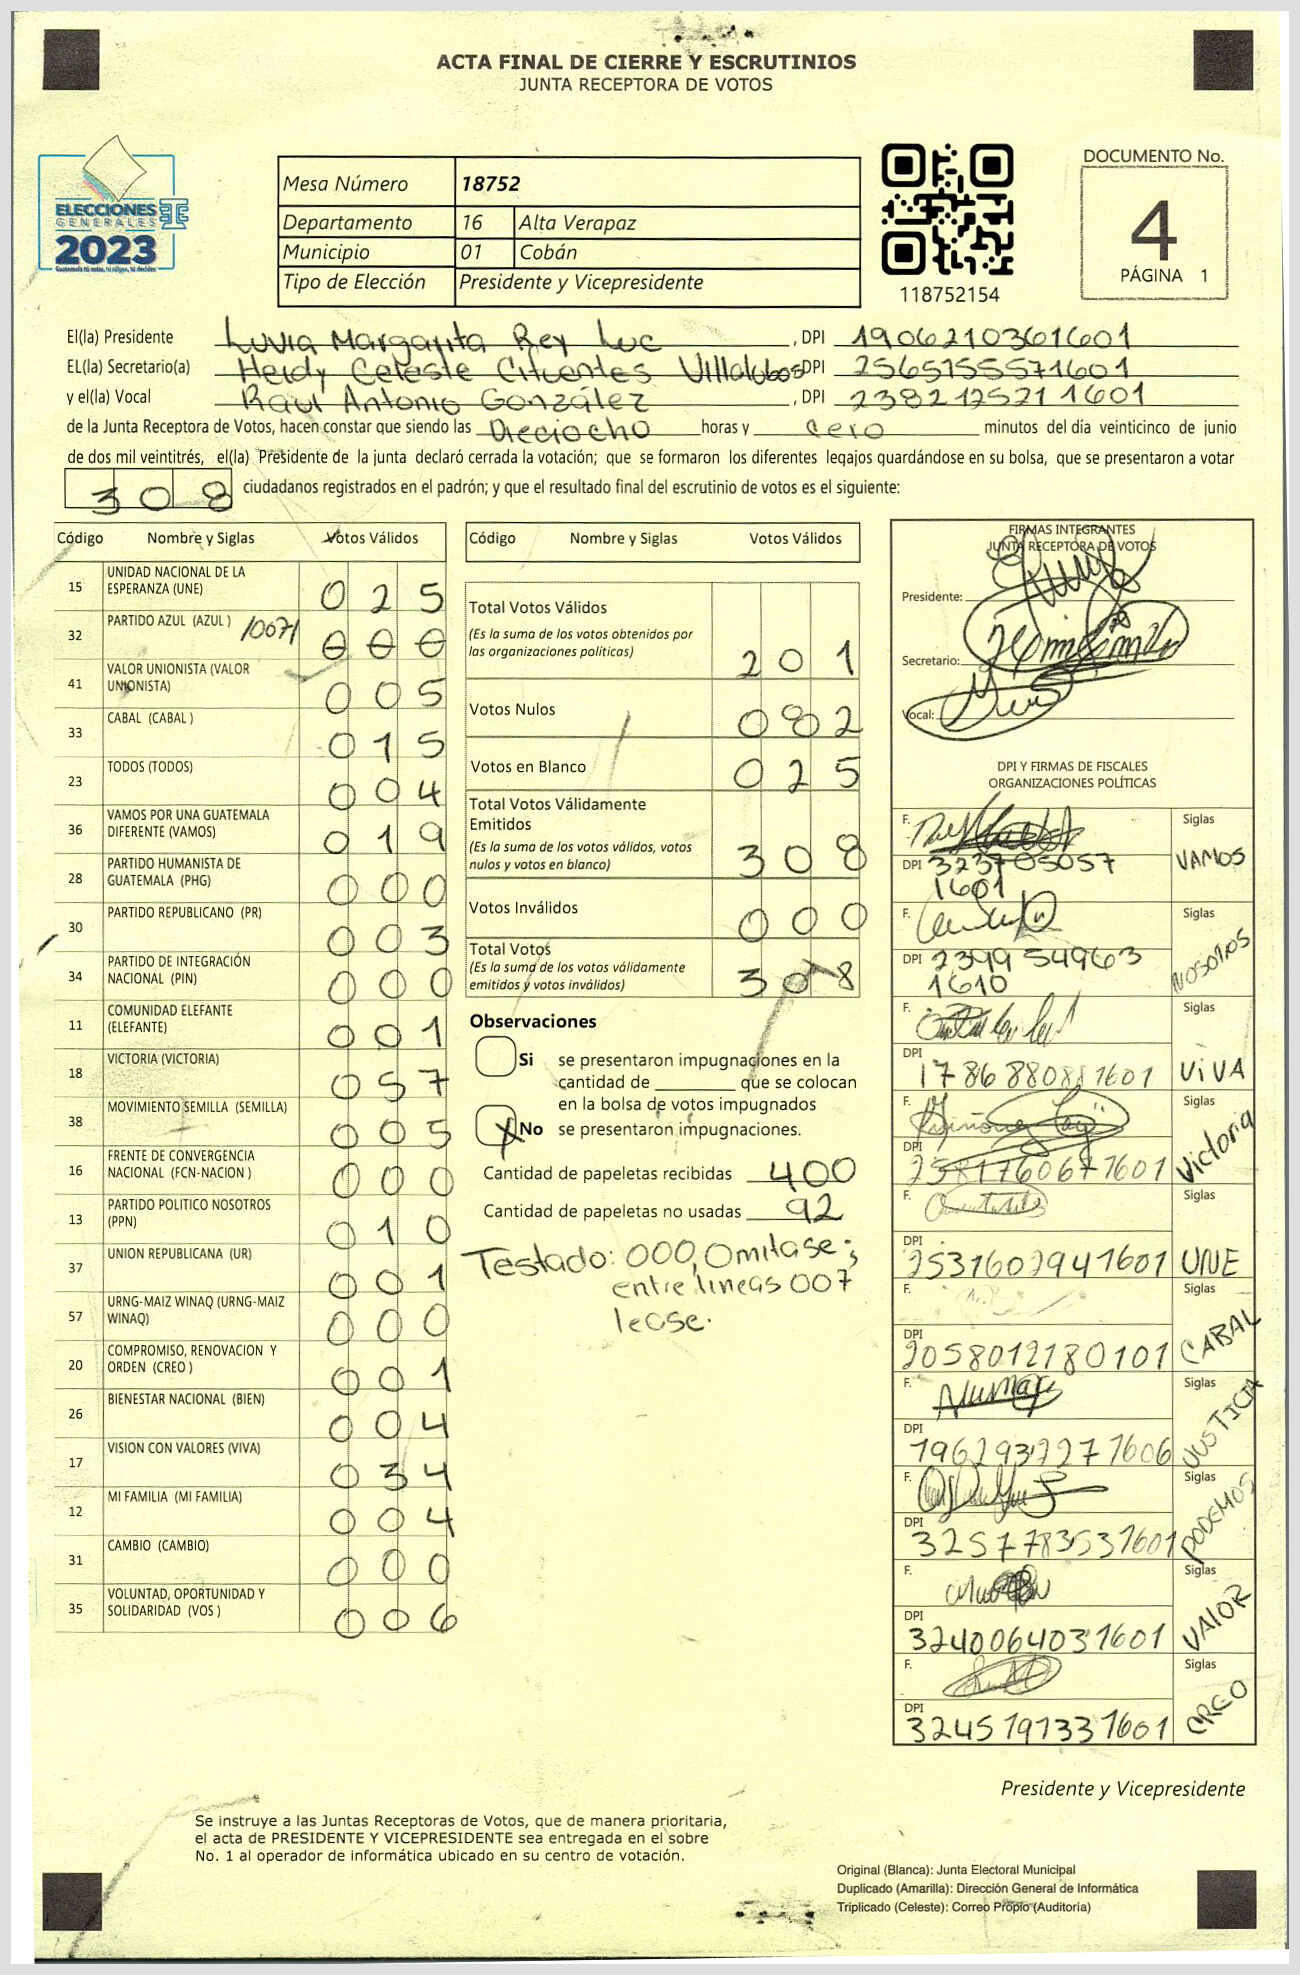 ACTA FINAL DE CIERRE Y ESCRUTINIOS
JUNTA RECEPTORA DE VOTOS
ELECCIONES
GENERALES
2023
Guatemala tú votas, tú eliges, tú decides
Mesa Número 18752
Departamento 16 Alta Verapaz
Municipio 01 Cobán
Tipo de Elección Presidente y Vicepresidente
118752154
DOCUMENTO No.
4
PÁGINA 1
El(la) Presidente Luvia Margarita Rey Luc, DPI 1906210361601
EL(la) Secretario(a) Heidy Celeste Cifuentes Villalobos DPI 2565155571601
y el(la) Vocal Raúl Antonio González, DPI 2382125211601
de la Junta Receptora de Votos, hacen constar que siendo las Dieciocho horas y cero minutos del día veinticinco de junio
de dos mil veintitrés, el(la) Presidente de la junta declaró cerrada la votación; que se formaron los diferentes legajos guardándose en su bolsa, que se presentaron a votar
308 ciudadanos registrados en el padrón; y que el resultado final del escrutinio de votos es el siguiente:
Código Nombre y Siglas Votos Válidos
15 UNIDAD NACIONAL DE LA ESPERANZA (UNE) 025
32 PARTIDO AZUL (AZUL ) 000
41 VALOR UNIONISTA (VALOR UNIONISTA) 005
33 CABAL (CABAL ) 015
23 TODOS (TODOS) 004
36 VAMOS POR UNA GUATEMALA DIFERENTE (VAMOS) 019
28 PARTIDO HUMANISTA DE GUATEMALA (PHG) 000
30 PARTIDO REPUBLICANO (PR) 003
34 PARTIDO DE INTEGRACIÓN NACIONAL (PIN) 000
11 COMUNIDAD ELEFANTE (ELEFANTE) 001
18 VICTORIA (VICTORIA) 057
38 MOVIMIENTO SEMILLA (SEMILLA) 005
16 FRENTE DE CONVERGENCIA NACIONAL (FCN-NACION ) 000
13 PARTIDO POLITICO NOSOTROS (PPN) 010
37 UNION REPUBLICANA (UR) 001
57 URNG-MAIZ WINAQ (URNG-MAIZ WINAQ) 000
20 COMPROMISO, RENOVACION Y ORDEN (CREO ) 001
26 BIENESTAR NACIONAL (BIEN) 004
17 VISION CON VALORES (VIVA) 034
12 MI FAMILIA (MI FAMILIA) 004
31 CAMBIO (CAMBIO) 000
35 VOLUNTAD, OPORTUNIDAD Y SOLIDARIDAD (VOS ) 006
Código Nombre y Siglas Votos Válidos
Total Votos Válidos 201
(Es la suma de los votos obtenidos por
las organizaciones políticas)
Votos Nulos 082
Votos en Blanco 025
Total Votos Válidamente
Emitidos 308
(Es la suma de los votos válidos, votos
nulos y votos en blanco)
Votos Inválidos 000
Total Votos 308
(Es la suma de los votos válidamente
emitidos y votos inválidos)
Observaciones
Si se presentaron impugnaciones en la
cantidad de ________ que se colocan
en la bolsa de votos impugnados
X No se presentaron impugnaciones.
Cantidad de papeletas recibidas 400
Cantidad de papeletas no usadas 92
Testado: 000, Omitase;
entre lineas 007
lease.
FIRMAS INTEGRANTES
JUNTA RECEPTORA DE VOTOS
Presidente:
Secretario:
Vocal:
DPI Y FIRMAS DE FISCALES
ORGANIZACIONES POLÍTICAS
F. Siglas
DPI 323705057 VAMOS
1601
F. Siglas
DPI 239954963 NOSOTROS
1610
F. Siglas
DPI 1786880881601 VIVA
F. Siglas
DPI 2581760671601 Victoria
F. Siglas
DPI 2531602941601 UNE
F. Siglas
DPI 2058012180101 CABAL
F. Siglas
DPI 1962932271606 JUSTICIA
F. Siglas
DPI 3257783531601 PODEMOS
F. Siglas
DPI 3240064031601 VALOR
F. Siglas
DPI 3245191331601 CREO
Presidente y Vicepresidente
Se instruye a las Juntas Receptoras de Votos, que de manera prioritaria,
el acta de PRESIDENTE Y VICEPRESIDENTE sea entregada en el sobre
No. 1 al operador de informática ubicado en su centro de votación.
Original (Blanca): Junta Electoral Municipal
Duplicado (Amarilla): Dirección General de Informática
Triplicado (Celeste): Correo Propio (Auditoría)